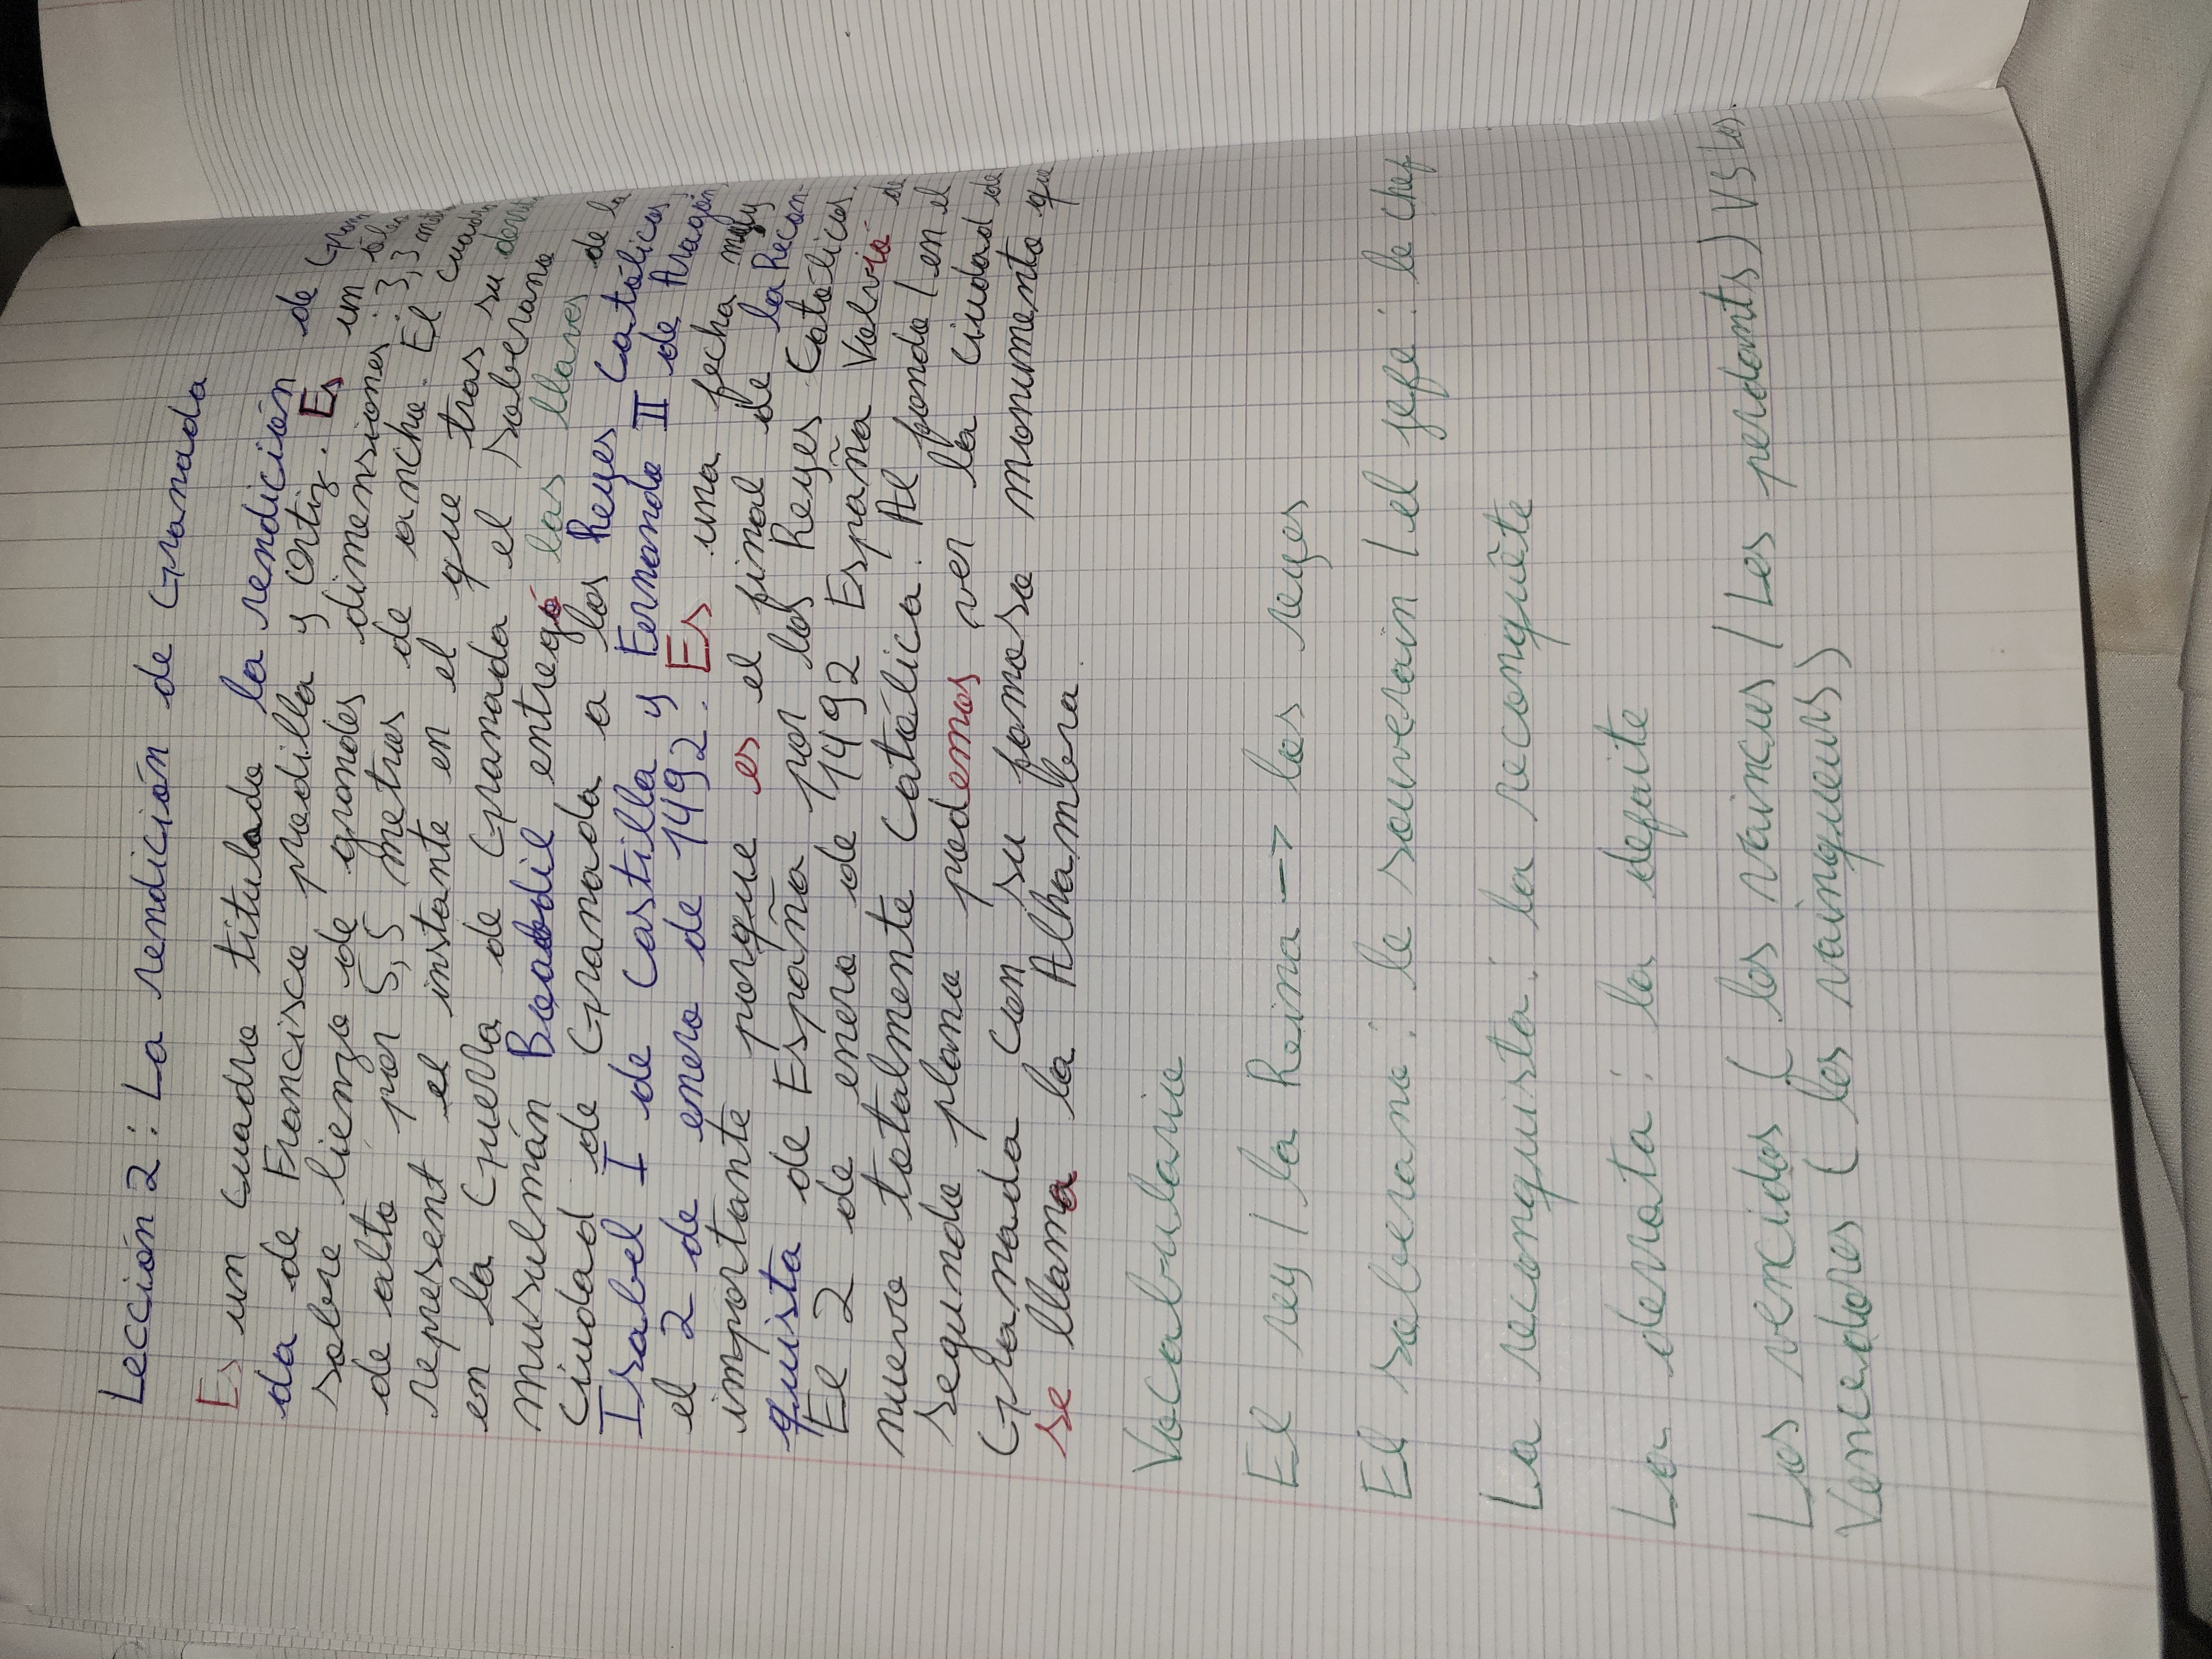 Lección 2 : La rendición de Granada
Es un cuadro titulado la rendición de Grana
da de Francisco pradilla y Ortiz. Es un óleo
sobre lienzo de grandes dimensiones : 3,3
de alto por 5,5 metros de ancho. El cuadro
represent el instante en el que tras su
en la Guerra de Granada el soberano
musulmán Boabdil entregó las llaves de la
ciudad de Granada a los Reyes Católicos
Isabel I de Castilla y Fernando II de Aragón,
el 2 de enero de 1492. Es una fecha muy
importante porque es el final de la Recon-
quista de España por los Reyes Católicos.
El 2 de enero de 1492 España Volvió de
nuevo totalmente Católica. Al fondo / en el
segundo plano podemos ver la ciudad de
Granada con su famoso monumento que
se llama la Alhambra.
Vocabulario
El rey / la Reina -> los reyes
El soberano : le souverain / el jefe : le chef
La reconquista : la reconquête
La derrota : la defaite
Los vencidos ( les vaincus / Les perdants) VS Los
Vencedores ( les vainqueurs)